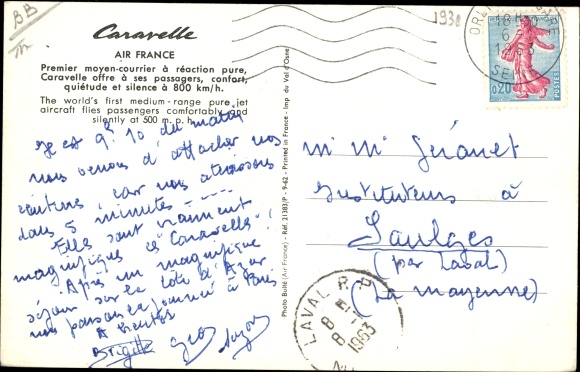 BB
1938
Caravelle
AIR FRANCE
Premier moyen-courrier à réaction pure,
Caravelle offre à ses passagers, confort,
quiétude et silence à 800 km/h.
The world's first medium-range pure jet
aircraft flies passengers comfortably and
silently at 500 m.p.h.
Il est 9h 10 du matin
nous venons d'attacher nos
ceintures, car nous atterissons
dans 5 minutes
Elles sont vraiment
magnifiques ces "Caravelles"!
Après un magnifique
séjour sur la côte d'Azur
nous passons la journée à Paris
A bientôt
Brigitte
Photo Boité (Air France) - Réf. 21383/P - 9-62 - Printed in France - Imp. du Val d'Osne
ORLY GARE
18H
6-
1963
SEINE
0,20
POSTES
M Mme
Instituteurs à
Saulges
(par Laval)
(La Mayenne)
LAVAL R.P.
8
1963